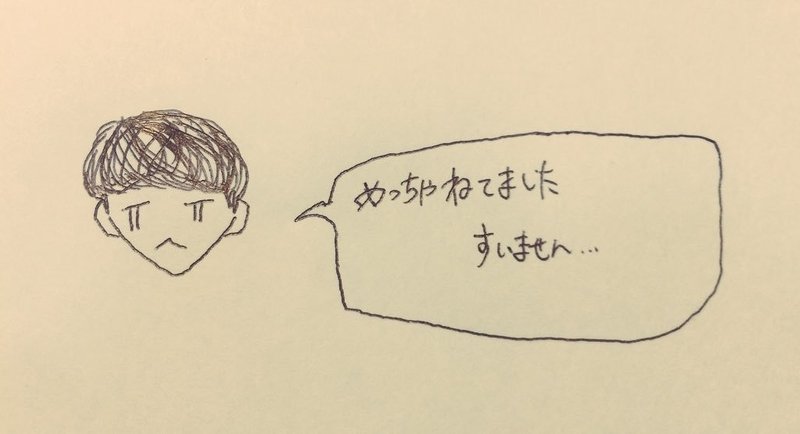 めっちゃねてました
すいません…